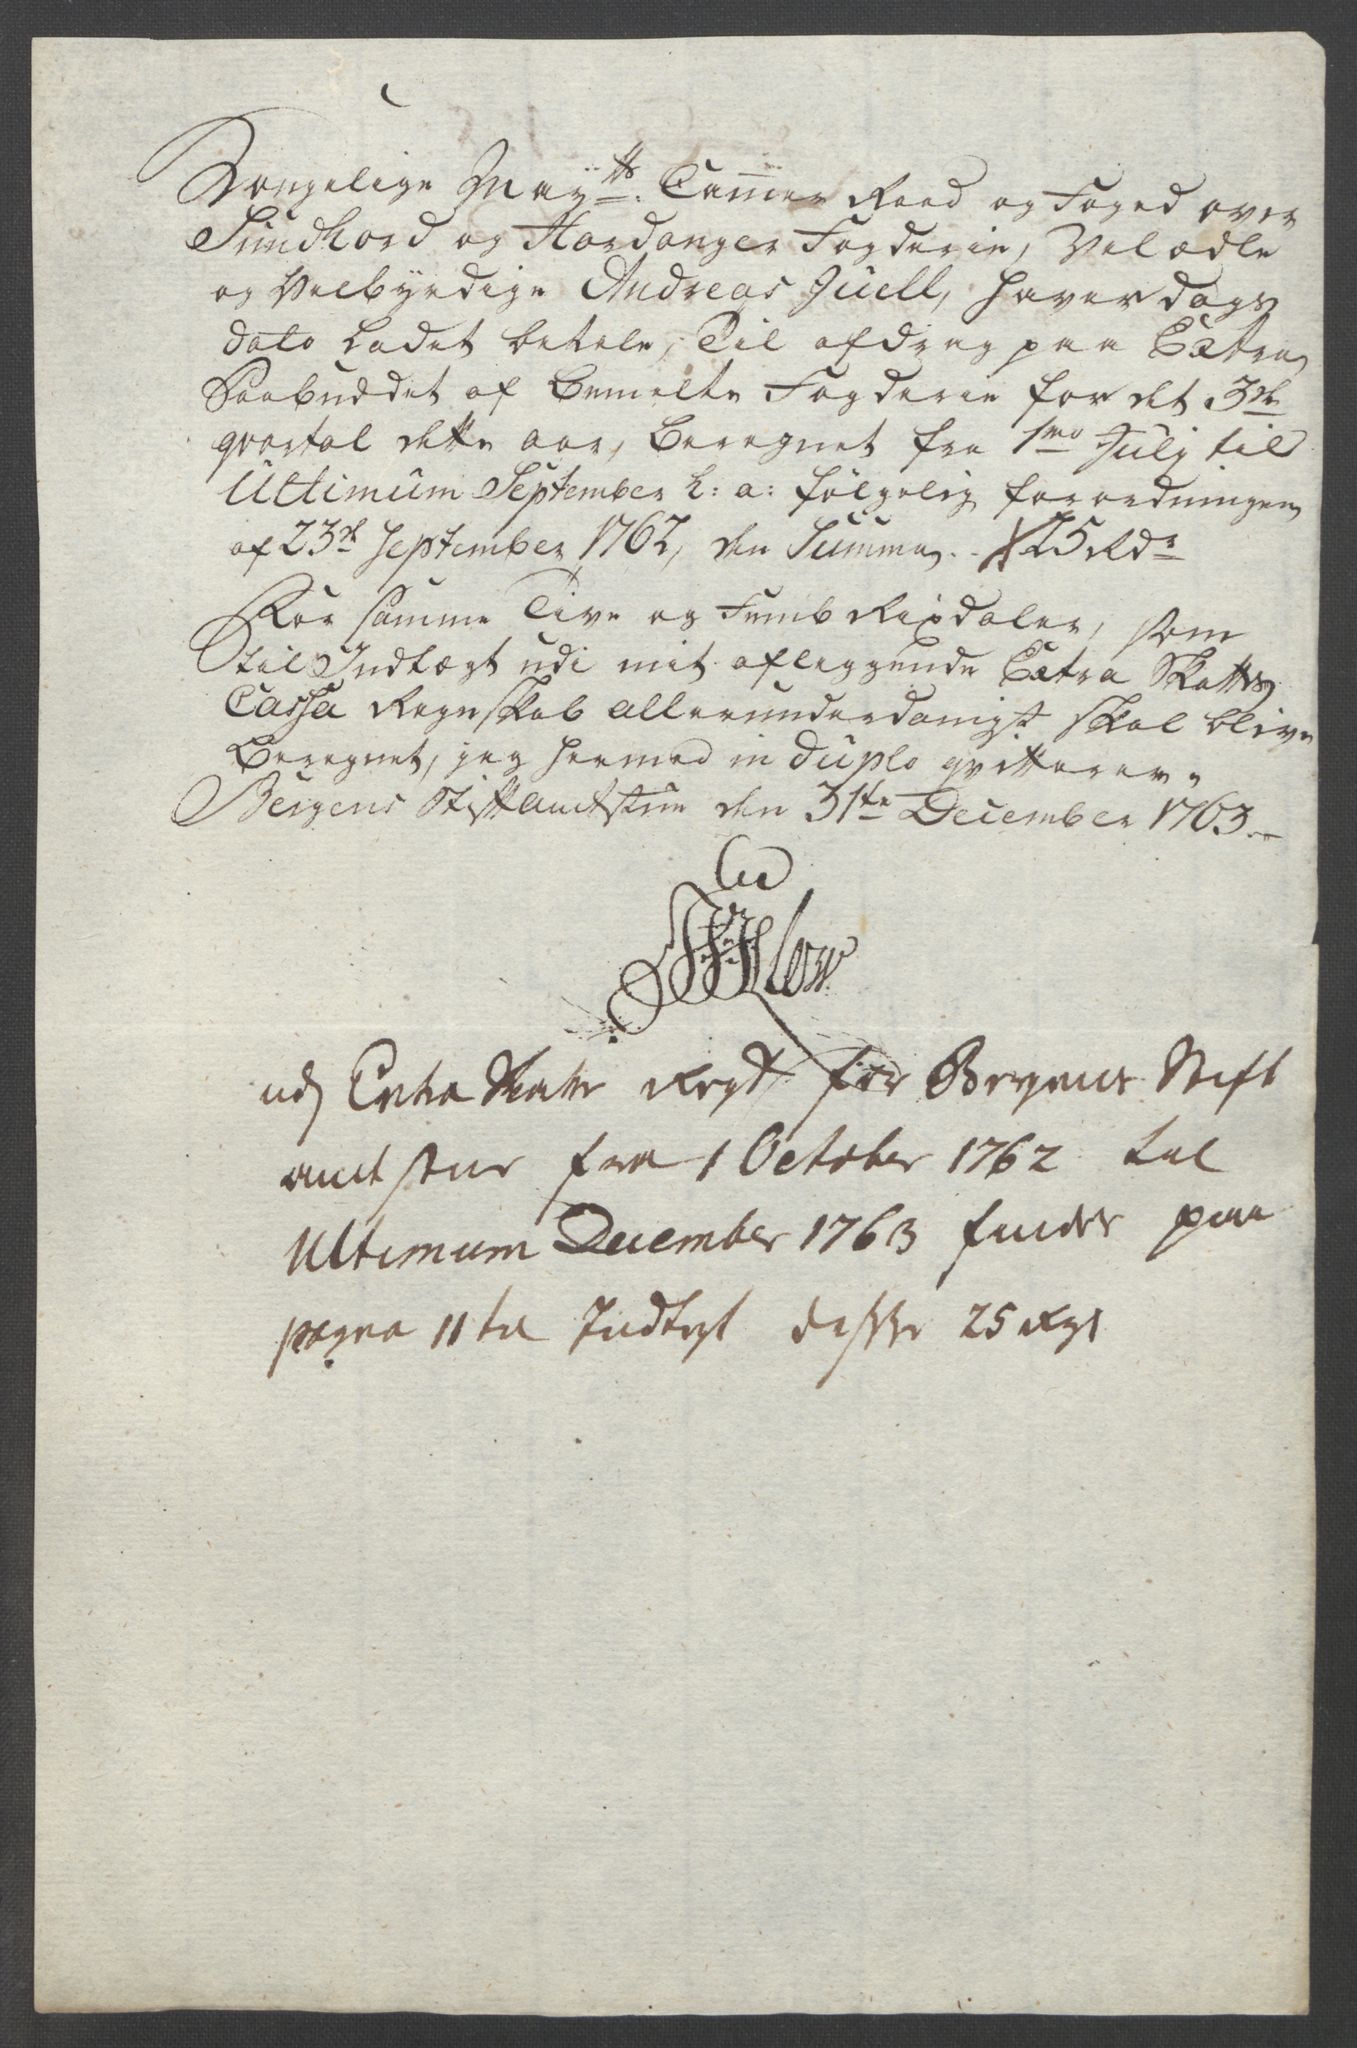 Kongelige May^tts: Cammer Raad og Foged over
Sundhord og Hardanger Fogderie, Velædle
og Velbyrdige Andreas Juell, haver dags
dato ladet betale, Til afdrag paa Extra
Paabuddet af bemelte Fogderie for det 3de
qvartal dette aar, beregnet fra 1mo July til
Ultimum September h: a: følgelig forordningen
af 23de September 1762, den Summa .. 25 Rdr
For samme Tive og Femb Rixdaler, som
til Indtægt udi mit aflæggende Extra Skattes
Cassa Regnskab allerunderdanigst skal blive
beregnet, jeg hermed in duplo qvitterer.
Bergens Stiftamtstue den 31te December 1763.
udj Extra Skatte Regsk for Bergens Stift
amtstue fra 1 October 1762 til
Ultimum December 1763 findes paa
pagna 11 til Indtegt disse 25 rd